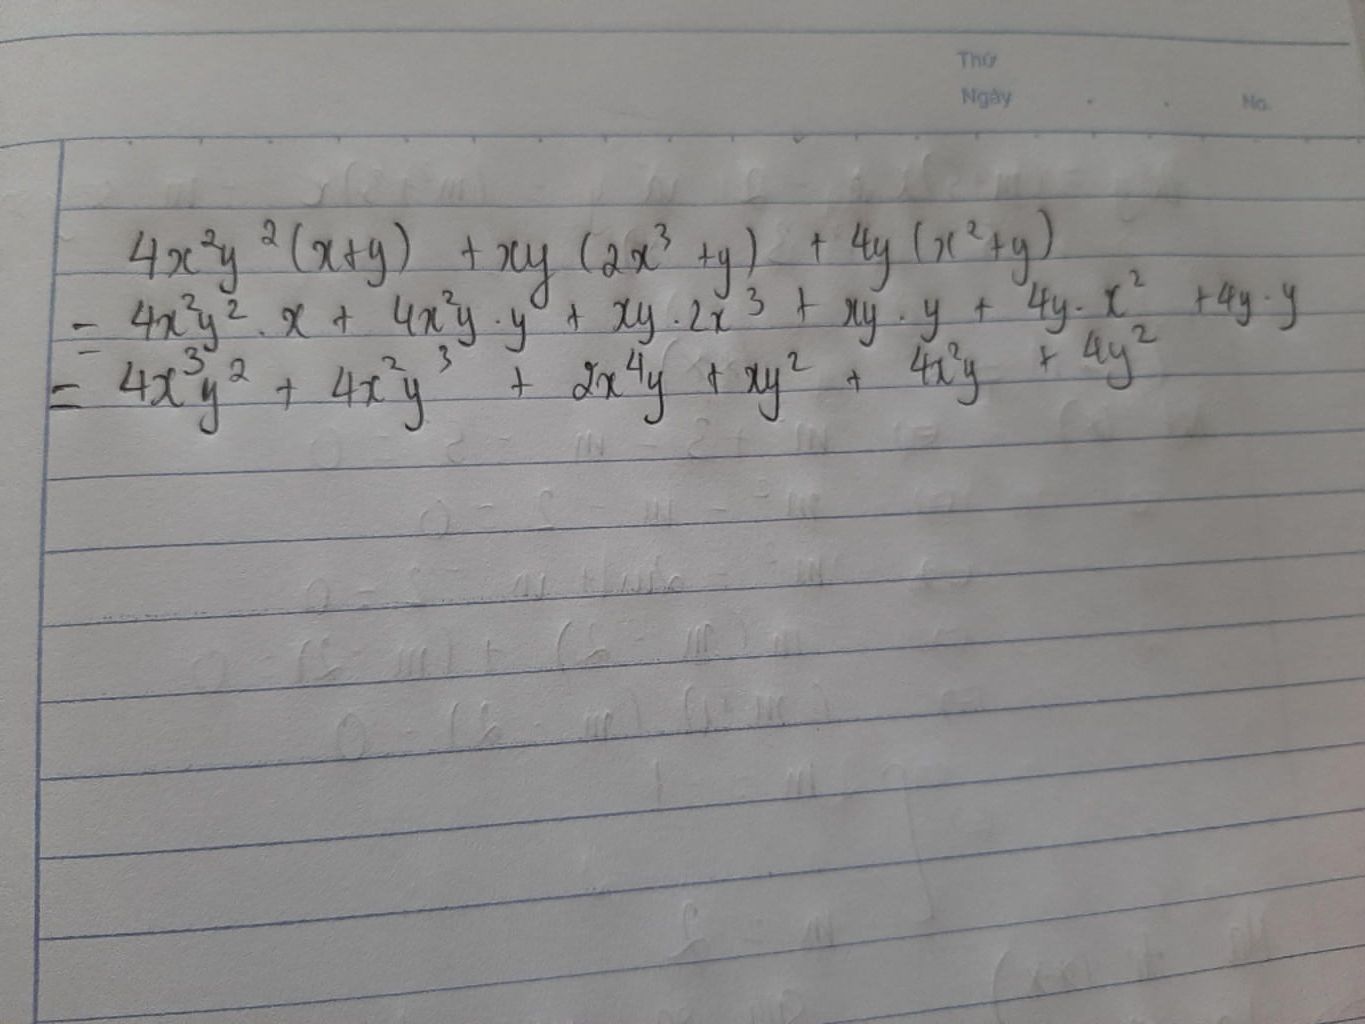 Thứ
Ngày . . No.
4x²y²(x+y) + xy (2x³ +y) + 4y (x²+y)
= 4x²y² . x + 4x²y . y + xy . 2x³ + xy . y + 4y . x² + 4y . y
= 4x³y² + 4x²y³ + 2x⁴y + xy² + 4x²y + 4y²